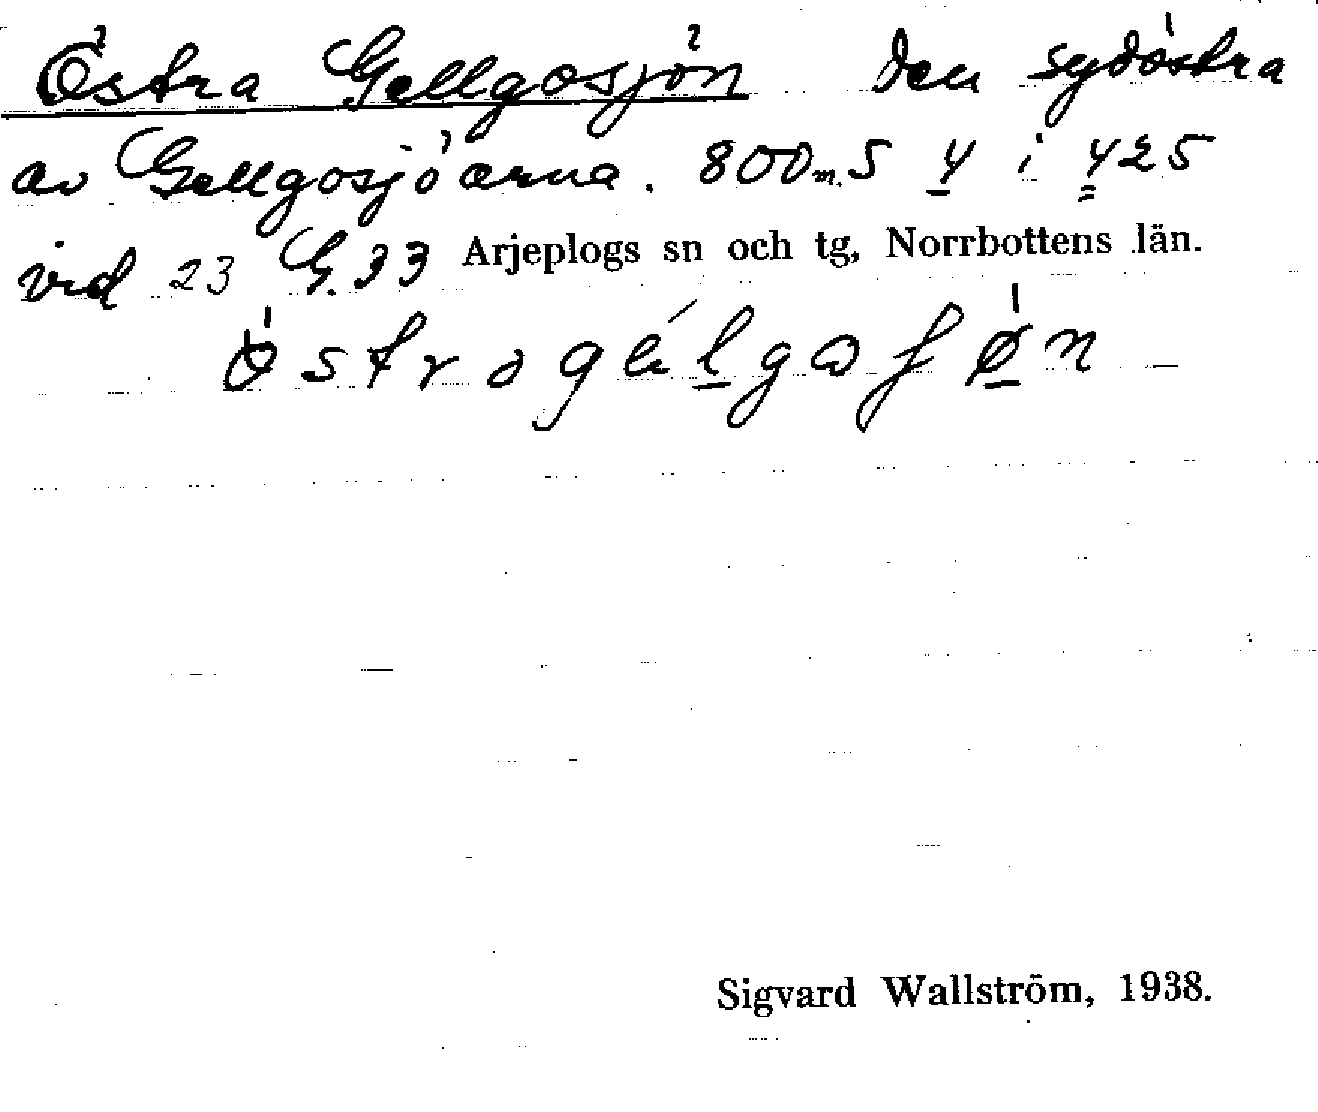 Östra Gellgosjön Den sydöstra
av Gellgosjöarna. 800 m. S 4 i 425
vid 23 G. 33 Arjeplogs sn och tg, Norrbottens län.
Sigvard Wallström, 1938.